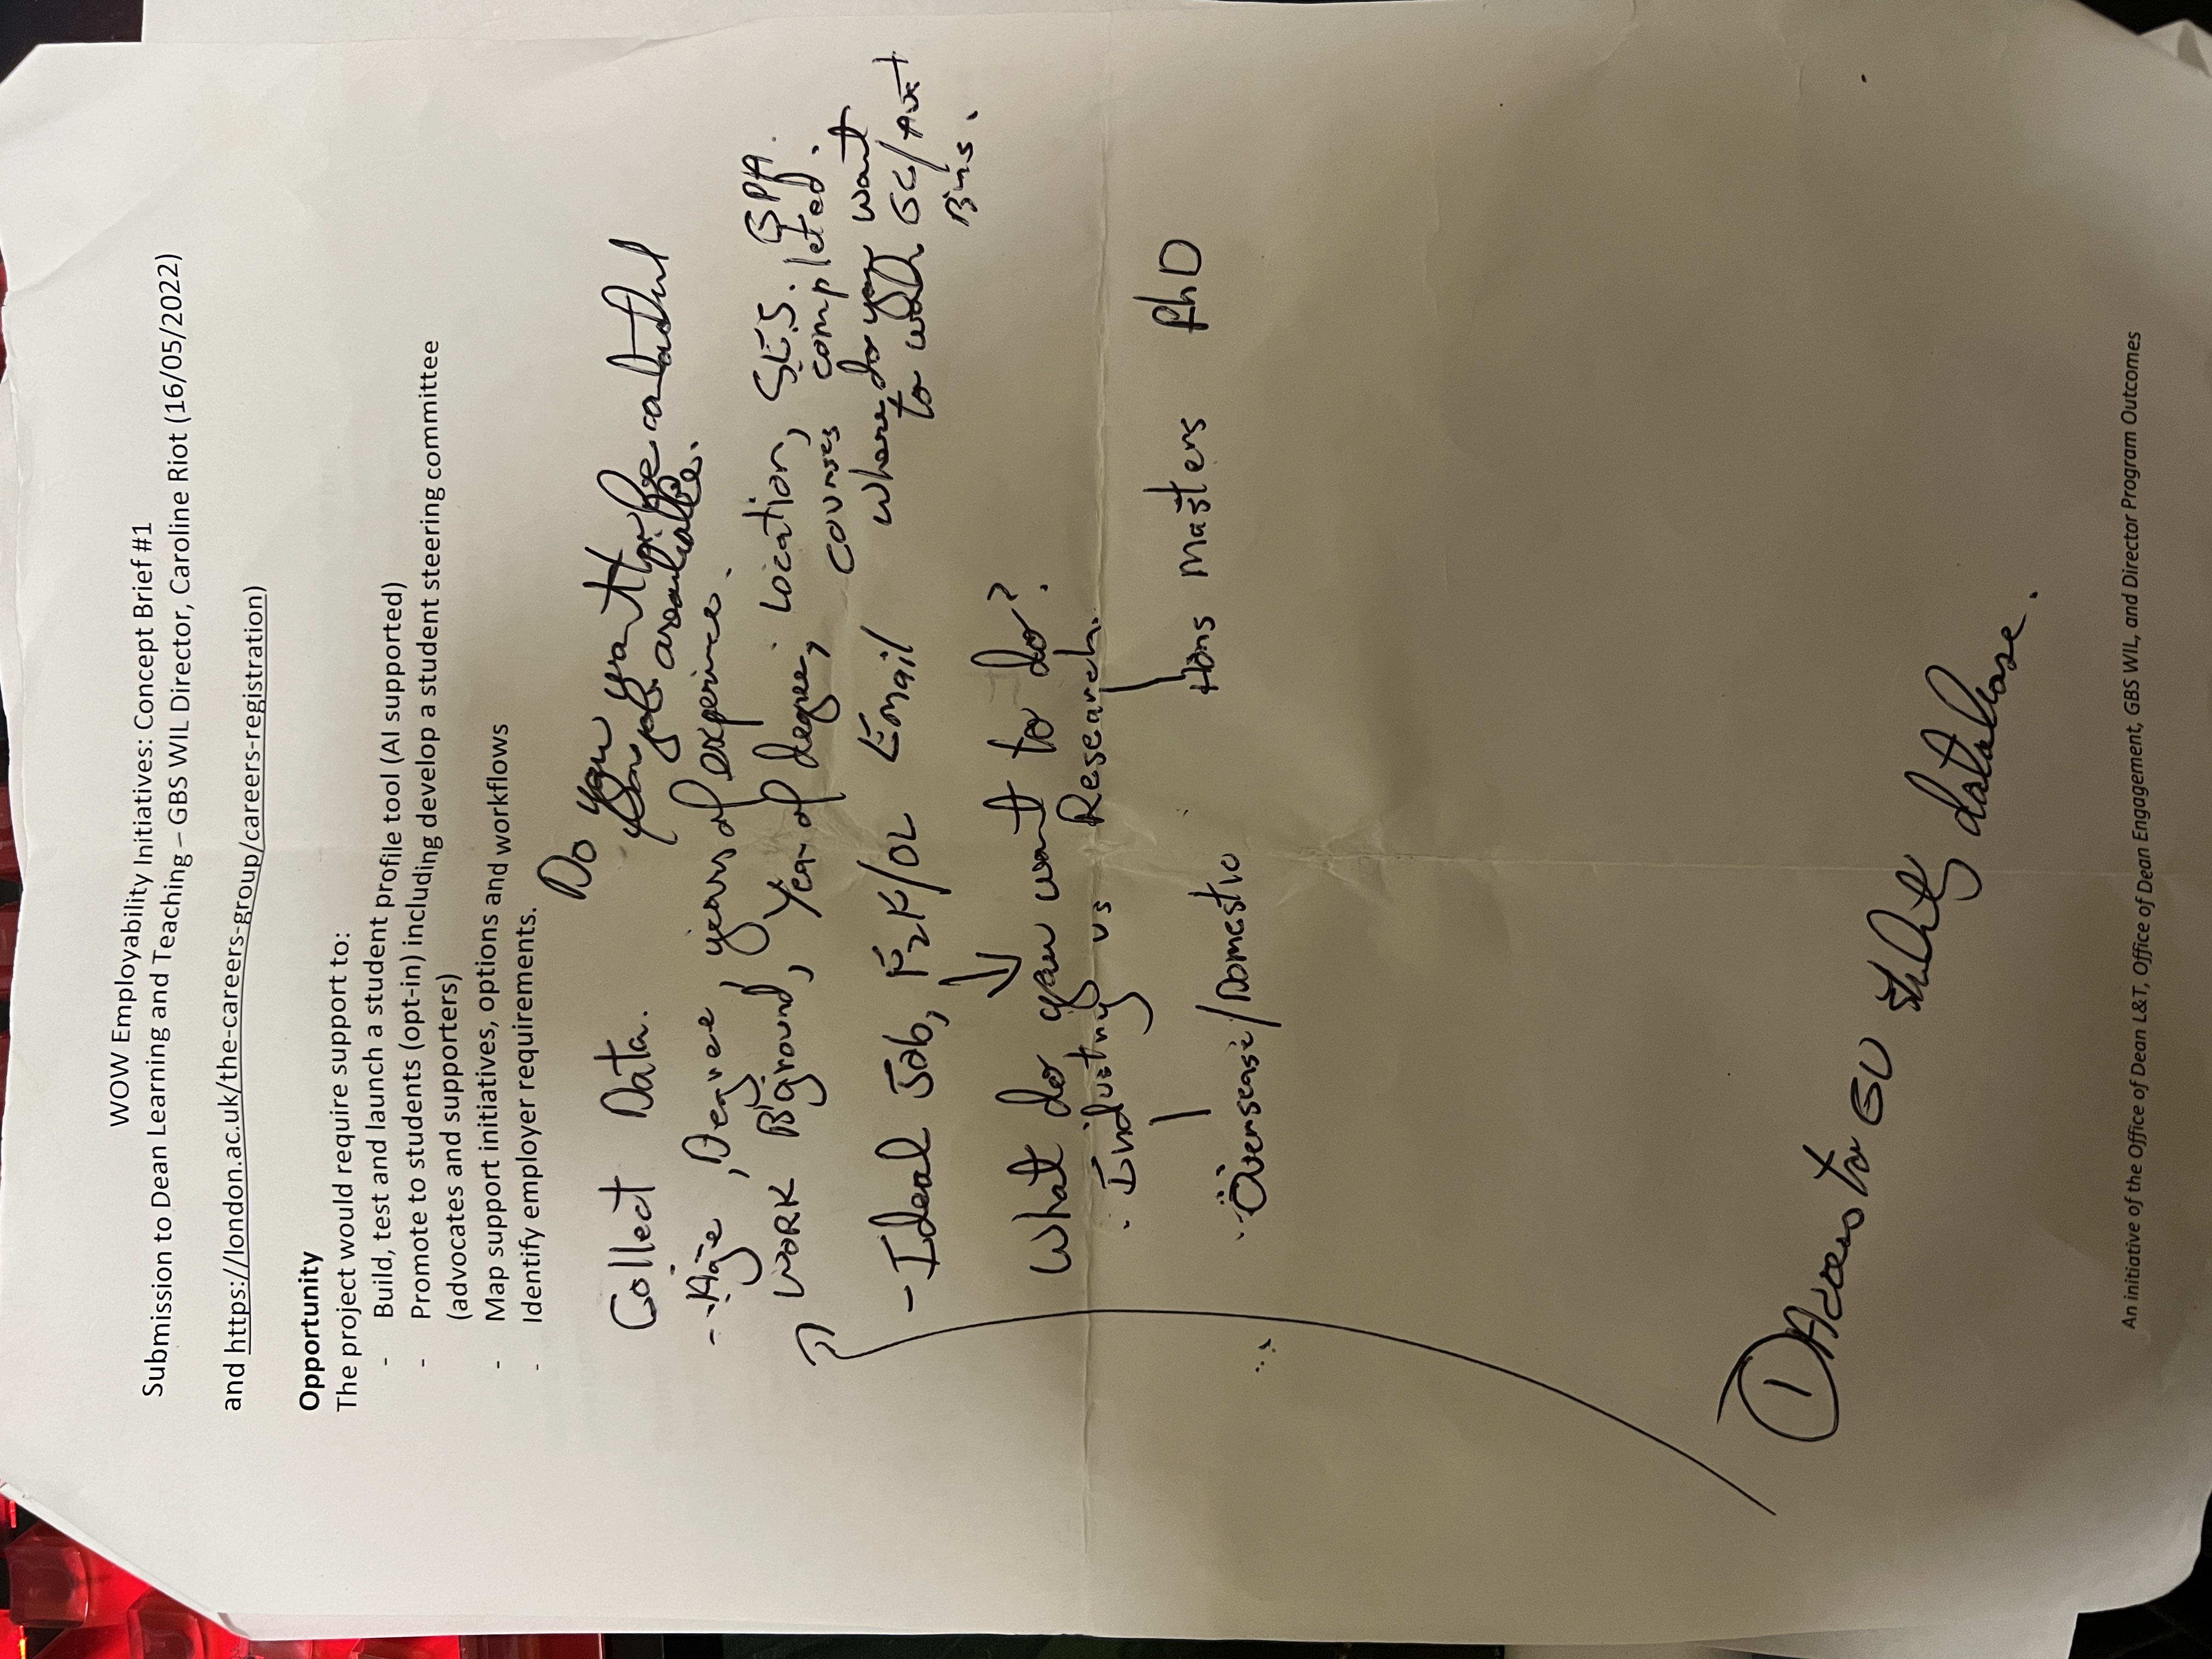 WOW Employability Initiatives: Concept Brief #1
Submission to Dean Learning and Teaching – GBS WIL Director, Caroline Riot (16/05/2022)
and https://london.ac.uk/the-careers-group/careers-registration)
Opportunity
The project would require support to:
- Build, test and launch a student profile tool (AI supported)
- Promote to students (opt-in) including develop a student steering committee
(advocates and supporters)
- Map support initiatives, options and workflows
- Identify employer requirements.
Do you want to be contacted
for job
Collect Data.
- Age, Degree, years of
WORK B'ground, Year of degree, Location, SES., GPA.
courses completed.
- Ideal Job, F2F/OL Email
where do you want
to work GC/Aust
Bris.
What do you want to do?
Industry vs Research.
Hons Masters PhD
/Domestic
1 Access to GU database.
An initiative of the Office of Dean L&T, Office of Dean Engagement, GBS WIL, and Director Program Outcomes